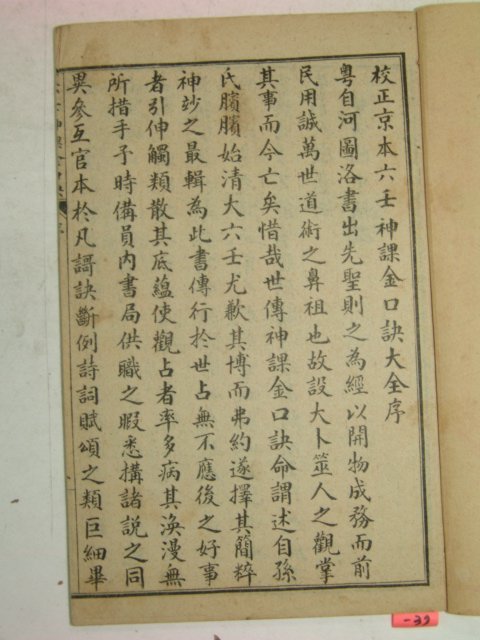 校正京本六壬神課金口訣大全序
粵自河圖洛書出先聖則之為經以開物成務而前
民用誠萬世道術之鼻祖也故設大卜筮人之觀掌
其事而今亡矣惜哉世傳神課金口訣命謂述自孫
氏臏臏始清大六壬尤歉其博而弗約遂擇其簡粹
神妙之最輯為此書傳行於世占無不應後之好事
者引伸觸類散其底蘊使觀占者率多病其渙漫無
所措手予時備員內書局供職之暇悉搆諸說之同
異參互官本於凡謌訣斷例詩詞賦頌之類巨細畢
-39